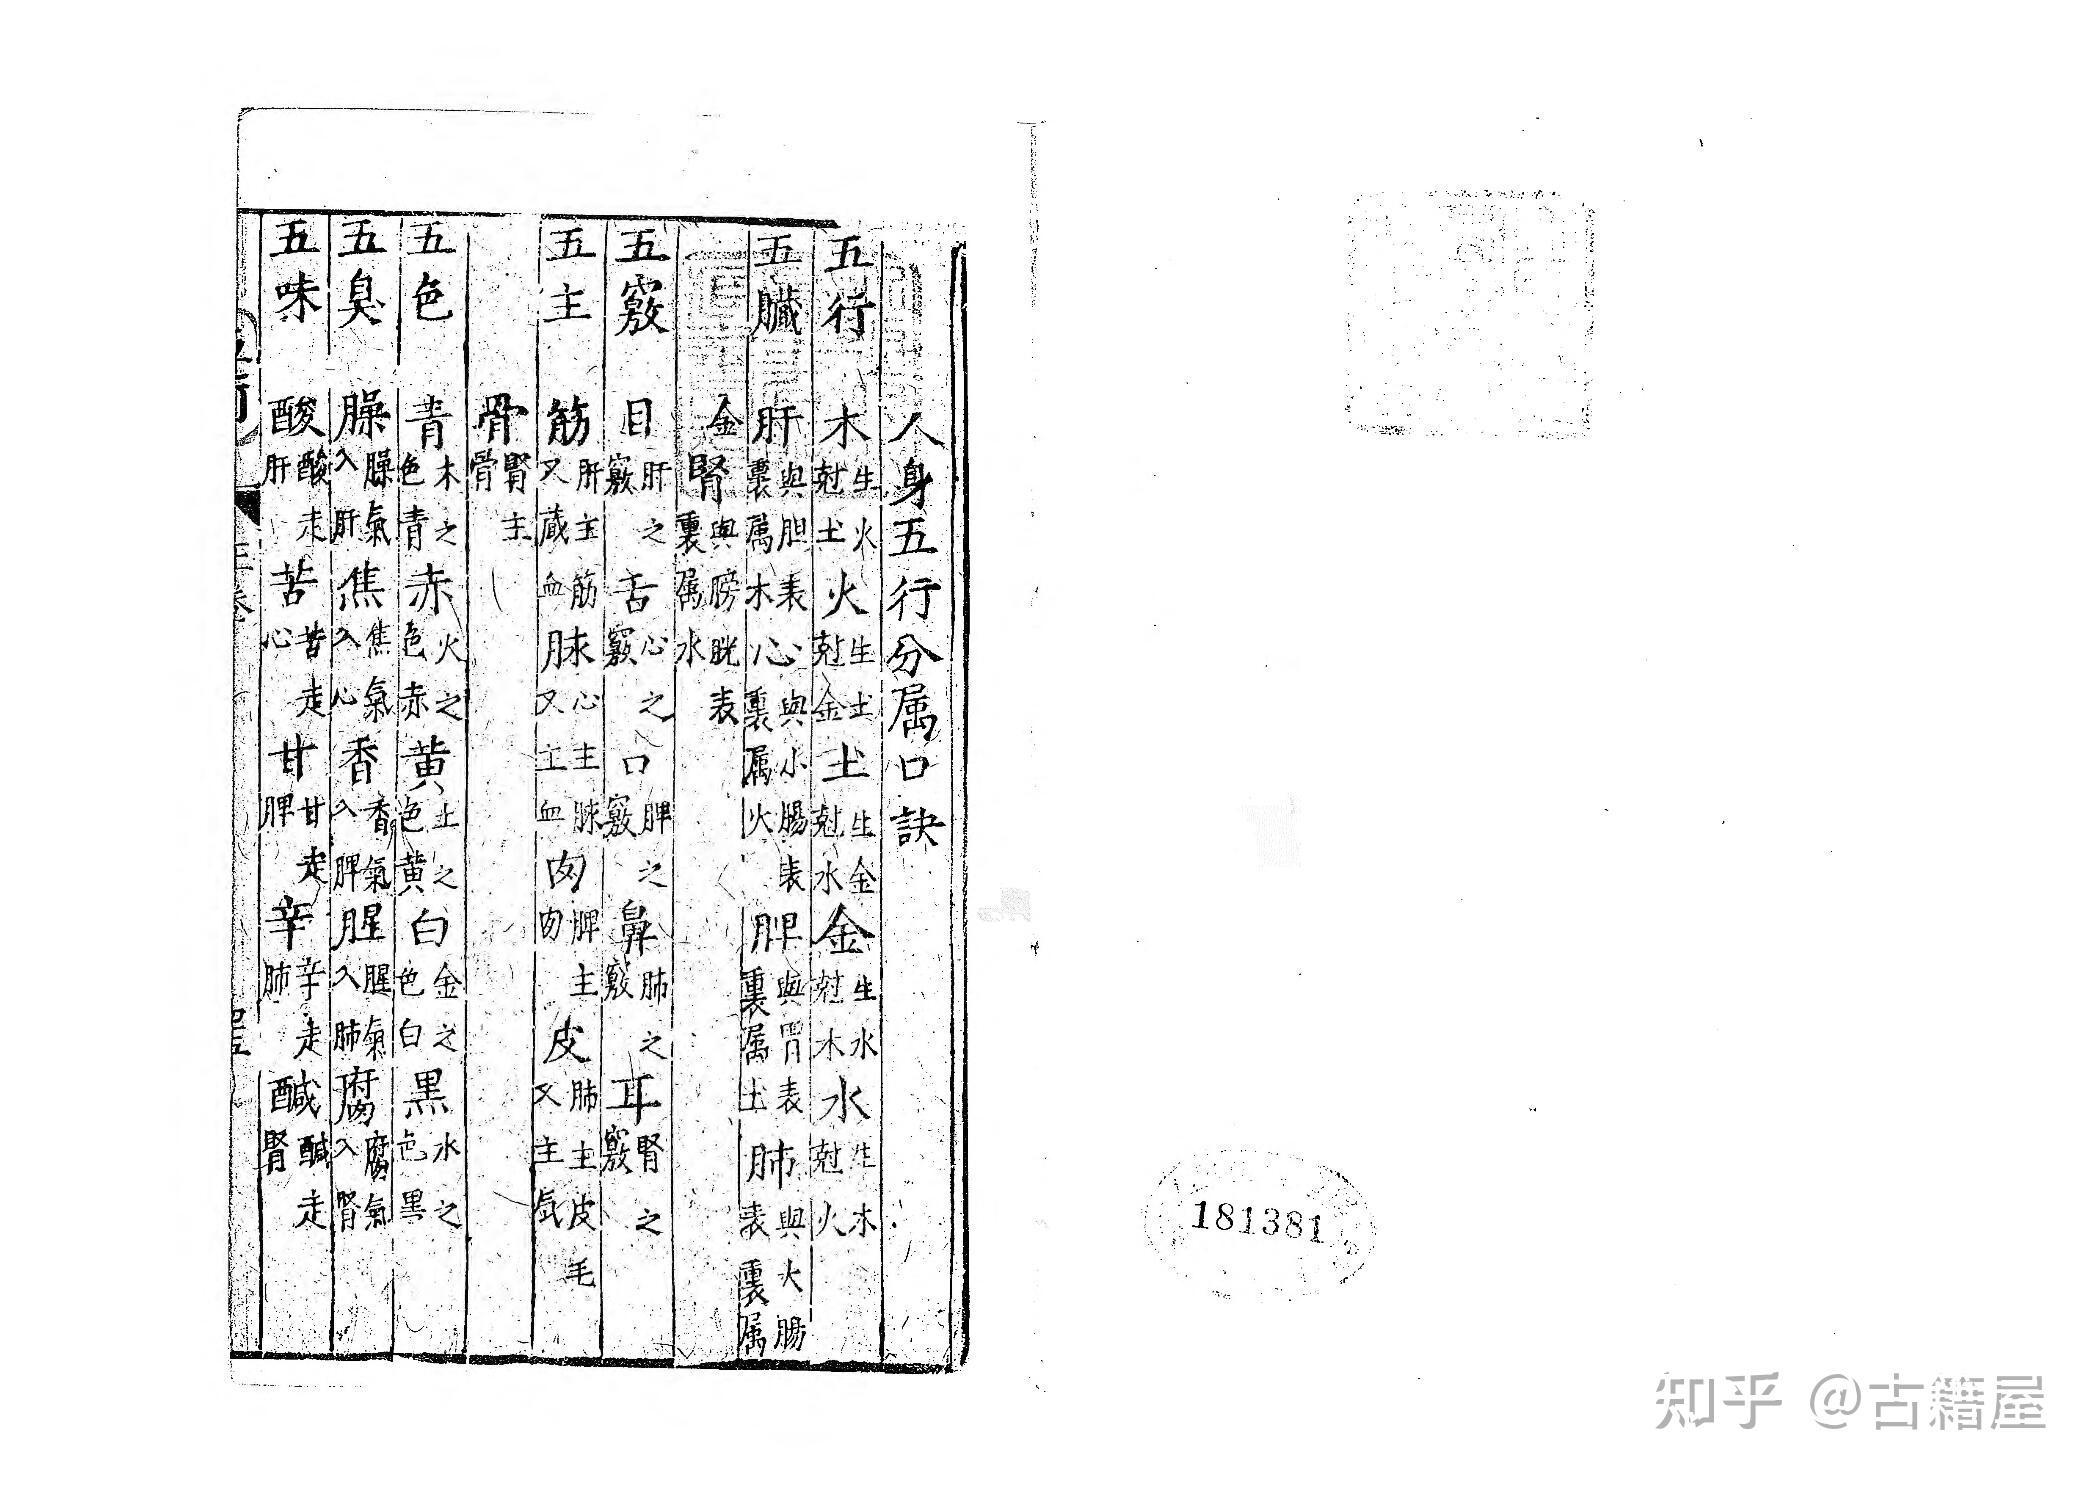 人身五行分属口訣
五行 木生火尅土 火生土尅金 土生金尅水 金生水尅木 水生木尅火
五臓 肝與胆表裏属木 心與小腸表裏属火 脾與胃表裏属土 肺與大腸表裏属
金 腎與膀胱表裏属水
五竅 目肝之竅 舌心之竅 口脾之竅 鼻肺之竅 耳腎之竅
五主 筋肝主筋又蔵血 脉心主脉又主血 肉脾主肉 皮肺主皮毛又主氣
骨腎主骨
五色 青木之色青 赤火之色赤 黄土之色黄 白金之色白 黒水之色黒
五臭 臊臊氣入肝 焦焦氣入心 香香氣入脾 腥腥氣入肺 腐腐氣入腎
五味 酸酸走肝 苦苦走心 甘甘走脾 辛辛走肺 鹹鹹走腎
181381
知乎 @古籍屋